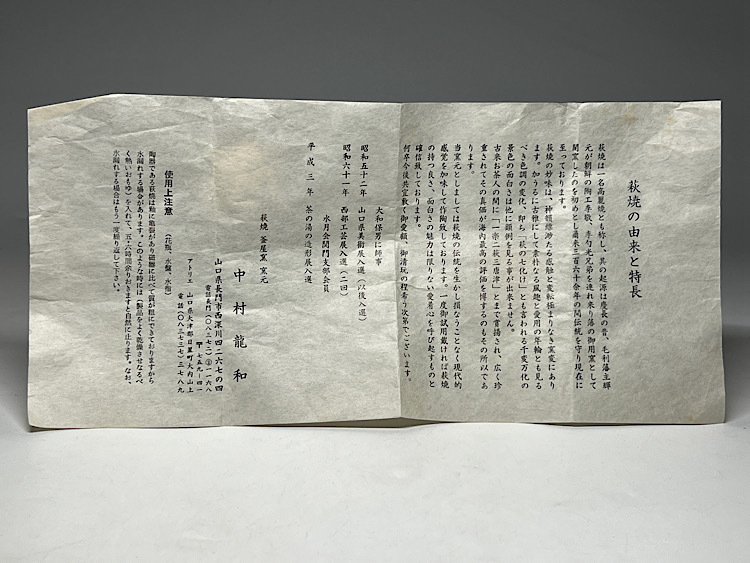 萩焼の由来と特長
萩焼は一名高麗焼とも称し、其の起源は慶長の昔、毛利藩主輝
元が朝鮮の陶工李敬、李勺光兄弟を連れ来り藩の御用窯として
開窯したのを初めとし爾来三百六十余年の間伝統を守り現在に
至っております。
萩焼の妙味は、神韻縹渺たる感触と変転極まりなき窯変にあり
ます。加うるに古雅にして素朴なる風趣と愛用の年輪とも見る
べき色調の変化、即ち「萩の七化け」とも言われる千変万化の
景色の面白さは他に類例を見る事が出来ません。
古来お茶人の間に「一楽二萩三唐津」とまで賞揚され、広く珍
重されてその真価が海内最高の評価を博するのもその所以であ
ります。
当窯元としましては萩焼の伝統を生かし損なうことなく現代的
感覚を加味して作陶致しております。一度御試用戴ければ萩焼
の持つ良さ、面白さの魅力は限りない愛着心を呼び起すものと
確信致しております。
何卒今後共宜敷く御愛顧、御清玩の程希う次第でございます。
大和保男に師事
昭和五十二年 山口県美術展入選(以後入選)
昭和六十一年 西部工芸展入選(二回)
水月会関門支部会員
平成三年 茶の湯の造形展入選
萩焼 釜屋窯 窯元
中村龍和
山口県長門市西深川四二六七の四
電話長門(〇八三七二)②一一六八
〒七五九-四一
アトリエ 山口県大津郡日置町大内山上
電話(〇八三七三七)三七八九
使用上注意 (花瓶、水盤、水指)
陶器である萩焼は釉に亀裂があり磁器に比べて質が粗にできておりますから
水漏れする場合があります。このような時には「製品をよく乾燥させなるべ
く熱いおもゆ」を入れて、五・六時間余りおきますと自然に止ります。なお、
水漏れする場合はもう一度繰り返して下さい。